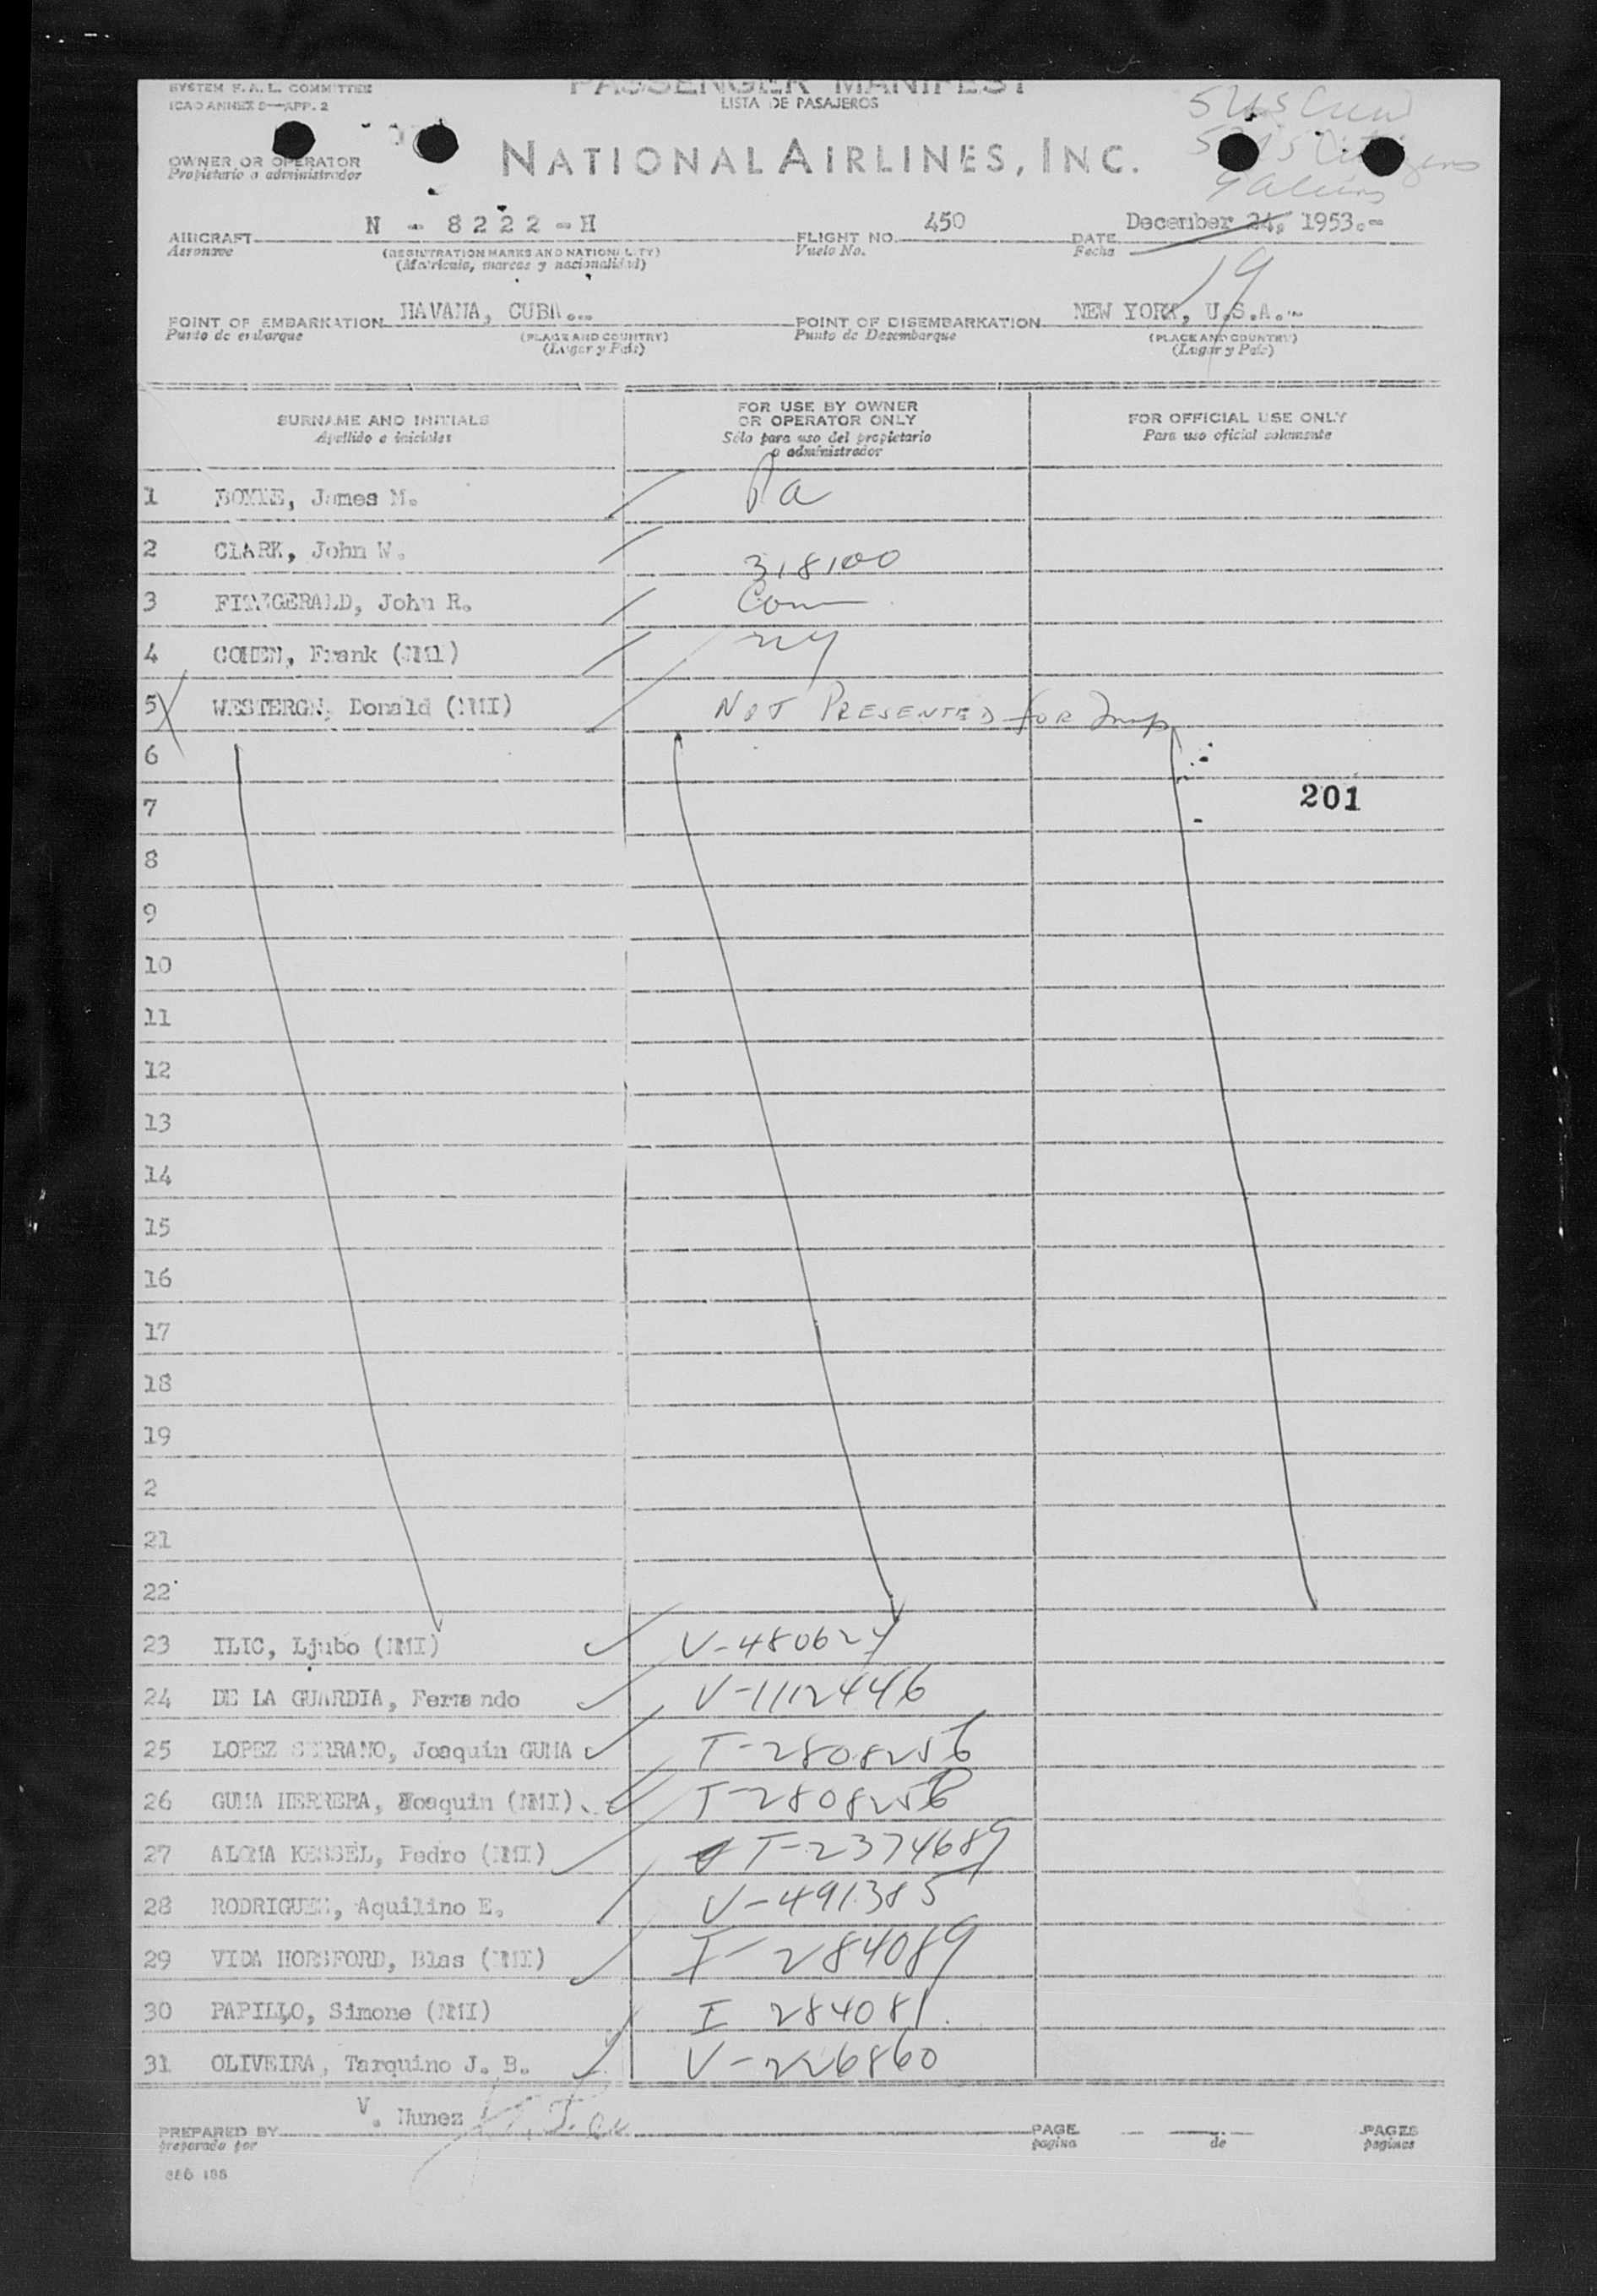 SYSTEM F.A.L. COMMITTEE
ICAO ANNEX 9—APP. 2
PASSENGER MANIFEST
LISTA DE PASAJEROS
5 US Crew
5 US Citizens
9 aliens
OWNER OR OPERATOR
Propietario o administrador
NATIONAL AIRLINES, INC.
AIRCRAFT N - 8 2 2 2 - H FLIGHT NO. 450 DATE December 24, 1953.-
Aeronave (REGISTRATION MARKS AND NATIONALITY) Vuelo No. Fecha
(Matricula, marcas y nacionalidad)
19
POINT OF EMBARKATION HAVANA, CUBA.-- POINT OF DISEMBARKATION NEW YORK, U.S.A.--
Punto de embarque (PLACE AND COUNTRY) Punto de Desembarque (PLACE AND COUNTRY)
(Lugar y País) (Lugar y País)
SURNAME AND INITIALS
Apellido e iniciales
FOR USE BY OWNER
OR OPERATOR ONLY
Sólo para uso del propietario
o administrador
FOR OFFICIAL USE ONLY
Para uso oficial solamente
1 James M. Pa
2 CLARK, John W. 318100
3 FITZGERALD, John R. Conn
4 COHEN, Frank (NMI) NY
5 Donald (NMI) NOT PRESENTED FOR Insp
6
7 201
8
9
10
11
12
13
14
15
16
17
18
19
2
21
22
23 ILIC, Ljubo (NMI) V-480624
24 DE LA GUARDIA, Ferna ndo V-1112446
25 LOPEZ SERRANO, Joaquin GUMA T-2808256
26 GUMA HERRERA, Joaquin (NMI) T-2808256
27 ALOMA KESSEL, Pedro (NMI) T-2374689
28 RODRIGUEZ, Aquilino E. V-491385
29 VIDA HORSFORD, Blas (NMI) I-284089
30 PAPILLO, Simone (NMI) I 284081
31 OLIVEIRA, Tarquino J. B. V-226860
PREPARED BY V. Nunez PAGE PAGES
preparada por pagina de paginas